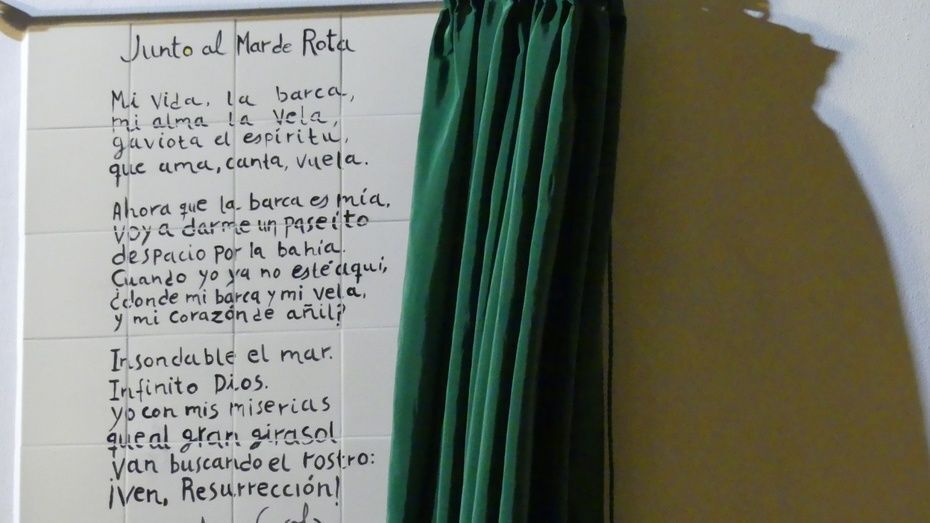 Junto al Mar de Rota
Mi vida, la barca,
mi alma la vela,
gaviota el espíritu,
que ama, canta, vuela.
Ahora que la barca es mía,
voy a darme un paseito
despacio por la bahía.
Cuando yo ya no esté aquí,
¿donde mi barca y mi vela,
y mi corazón de añil?
Insondable el mar.
Infinito Dios.
yo con mis miserias
que al gran girasol
van buscando el rostro:
¡Ven, Resurrección!